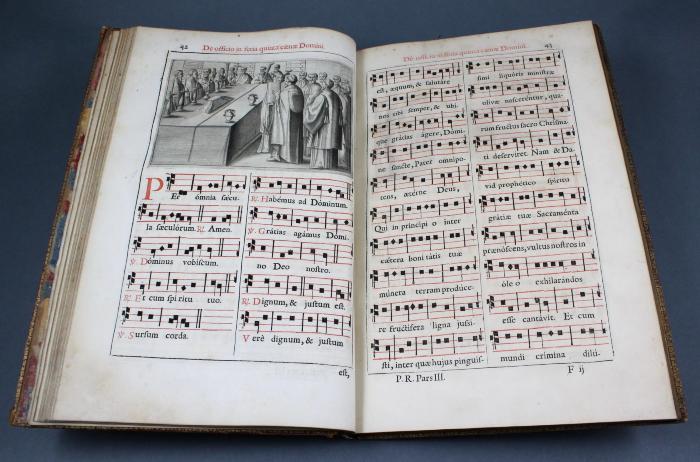 42 De officio in feria quinta cœnæ Domini.
PEr ómnia sæcu-
la sæculórum. ℟. Amen.
℣. Dóminus vobiscum.
℟. Et cum spiritu tuo.
℣. Sursum corda.
℟. Habémus ad Dóminum.
℣. Grátias agámus Dómi-
no Deo nostro.
℟. Dignum, & justum est.
Verè dignum, & justum
est,
De officio in feria quinta cœnæ Domini. 43
est, æquum, & salutáre
nos tibi semper, & ubi-
que grátias ágere, Dómi-
ne sancte, Pater omnipo-
tens, ætérne Deus,
Qui in princípio inter
cætera bonitátis tuæ
múnera terram prodúce-
re fructífera ligna jussi-
sti, inter quæ hujus pinguís-
simi liquóris ministræ
olívæ nascerentur, qua-
rum fructus sacro Chrisma-
ti deserviret. Nam & Da-
vid prophético spíritu
grátiæ tuæ Sacraménta
prænóscens, vultus nostros in
óleo exhilarándos
esse cantávit. Et cum
mundi crímina dilú-
P. R. Pars III. F ij